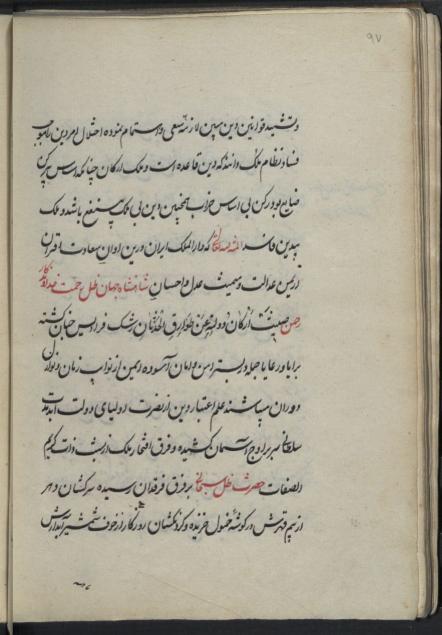 ۹۷
و تشیید قوانین دین مبین لازمه سعی و اهتمام نموده اختلال امر دین را موجب
فساد نظام ملک دانند که دین قاعده است و ملک ارکان چنانکه اساس بی رکن
ضایع بود رکن بی اساس خراب همچنین دین بی ملک ضایع باشد و ملک
بیدین فاسد الحمد لله تعالی که دار الملک ایران درین اوان سعادت اقتران
از یمن عدالت و میمنت عدل و احسان شاهنشاه جهان ظل رحمت خداوندگار
رحمن صیت ارکان دوله عن طوارق الحدثان رشک فرادیس جنان گشته
برایا و رعایا جمله در بستر امن و امان آسوده و ایمن از نوایب زمان و نوازل
دوران میباشند علم اعتبار دین از نصرت اولیای دولت ابدمدت
سلطانی سر بر اوج آسمان کشیده و فرق افتخار ملک از شرف ذات کریم
الصفات حضرت ظل سبحانی بر فرق فرقدان رسیده سرکشان دهر
از بیم قهرش در گوشه خمول خزیده و گردنکشان روزگار از خوف شمشیر آبدارش